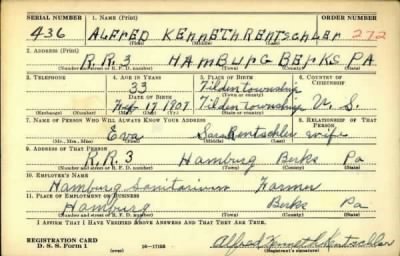 SERIAL NUMBER 1. NAME (Print) ORDER NUMBER
436 ALFRED KENNETH RENTSCHLER 272
(First) (Middle) (Last)
2. ADDRESS (Print)
R.R.3 HAMBURG BERKS PA
(Number and street or R. F. D. number) (Town) (County) (State)
3. TELEPHONE 4. AGE IN YEARS 5. PLACE OF BIRTH 6. COUNTRY OF CITIZENSHIP
33 Tilden township
DATE OF BIRTH (Town or county)
17 1907 Tilden township U. S.
(Exchange) (Number) (Mo.) (Day) (Yr.) (State or country)
7. NAME OF PERSON WHO WILL ALWAYS KNOW YOUR ADDRESS 8. RELATIONSHIP OF THAT PERSON
Eva Sara Rentschler wife
(Mr., Mrs., Miss) (First) (Middle) (Last)
9. ADDRESS OF THAT PERSON
R.R.3 Hamburg Berks Pa
(Number and street or R. F. D. number) (Town) (County) (State)
10. EMPLOYER'S NAME
Hamburg Sanitarium Farmer
11. PLACE OF EMPLOYMENT OR BUSINESS
Hamburg Berks Pa
(Number and street or R. F. D. number) (Town) (County) (State)
I AFFIRM THAT I HAVE VERIFIED ABOVE ANSWERS AND THAT THEY ARE TRUE.
REGISTRATION CARD
D. S. S. Form 1 (over) 16-17105 Alfred Kenneth Rentschler
(Registrant's signature)